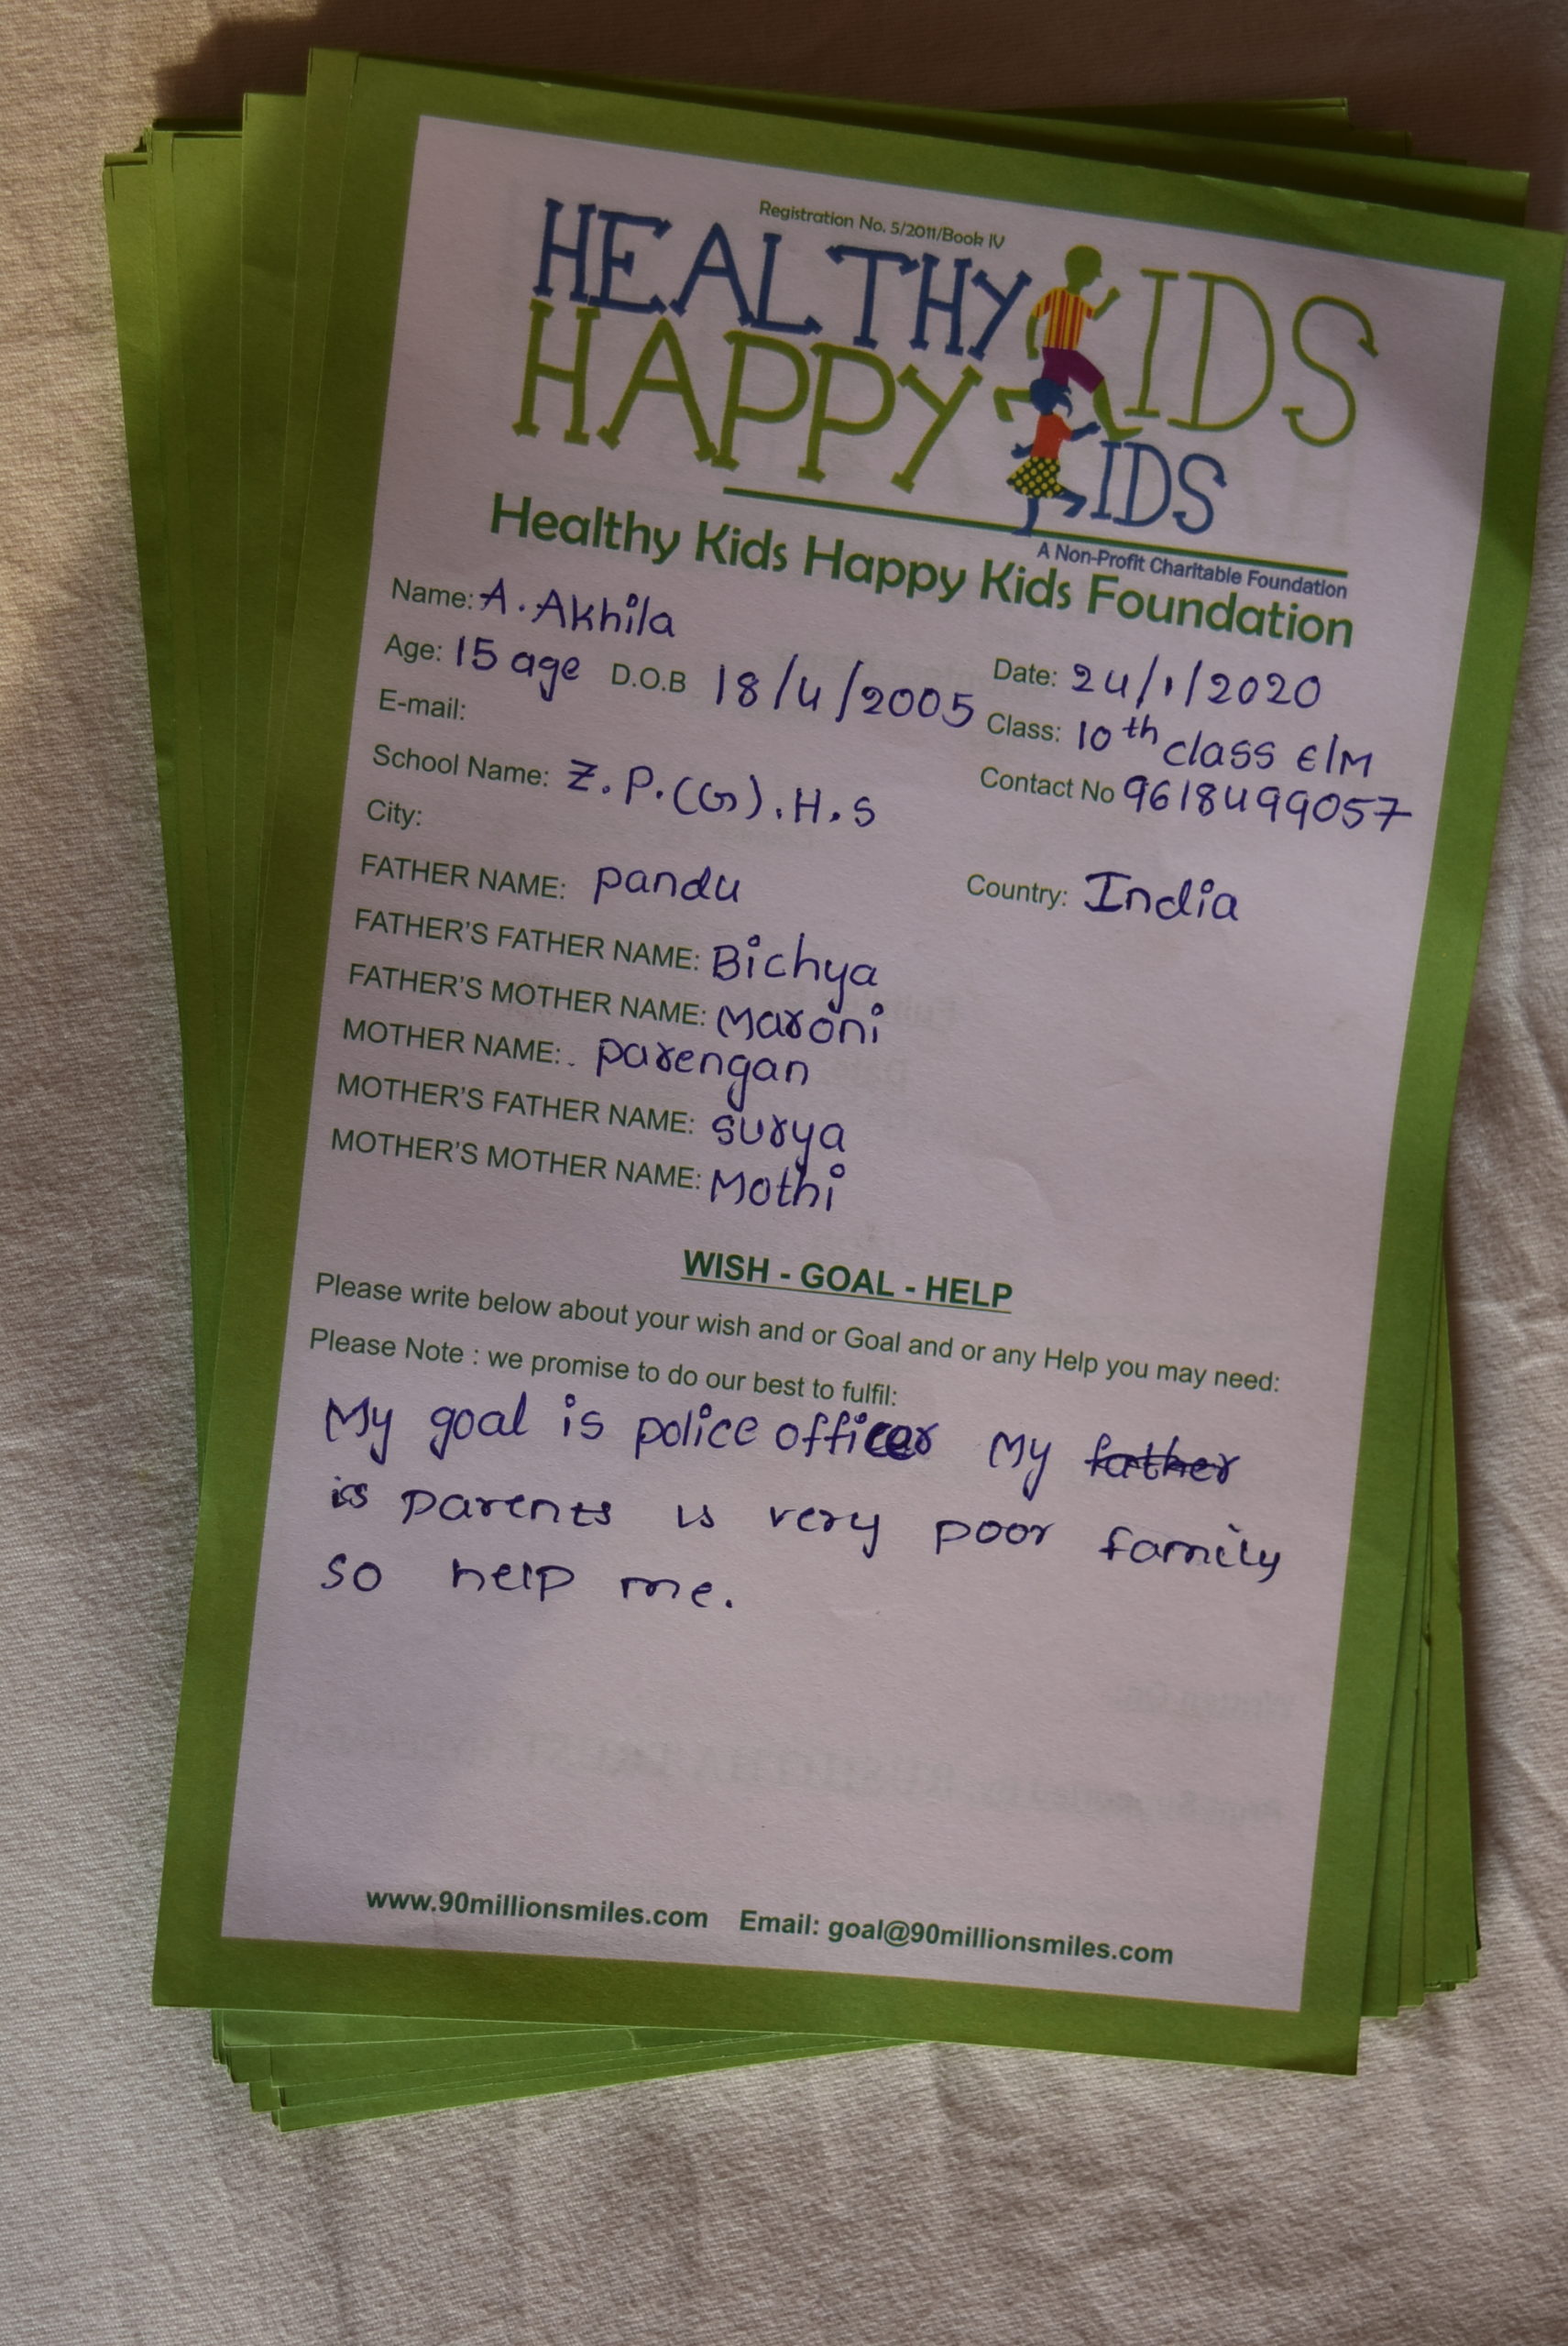 Registration No. 5/2011/Book IV
HEALTHY KIDS
HAPPY KIDS
A Non-Profit Charitable Foundation
Healthy Kids Happy Kids Foundation
Name: A. Akhila
Date: 24/1/2020
Age: 15 age D.O.B 18/4/2005
Class: 10th class E/M
E-mail:
Contact No 9618499057
School Name: Z.P.(G).H.S
City:
Country: India
FATHER NAME: pandu
FATHER'S FATHER NAME: Bichya
FATHER'S MOTHER NAME: Maroni
MOTHER NAME: parengan
MOTHER'S FATHER NAME: surya
MOTHER'S MOTHER NAME: Mothi
WISH - GOAL - HELP
Please write below about your wish and or Goal and or any Help you may need:
Please Note : we promise to do our best to fulfil:
My goal is police officer My father
is parents is very poor family
so help me.
www.90millionsmiles.com Email: goal@90millionsmiles.com